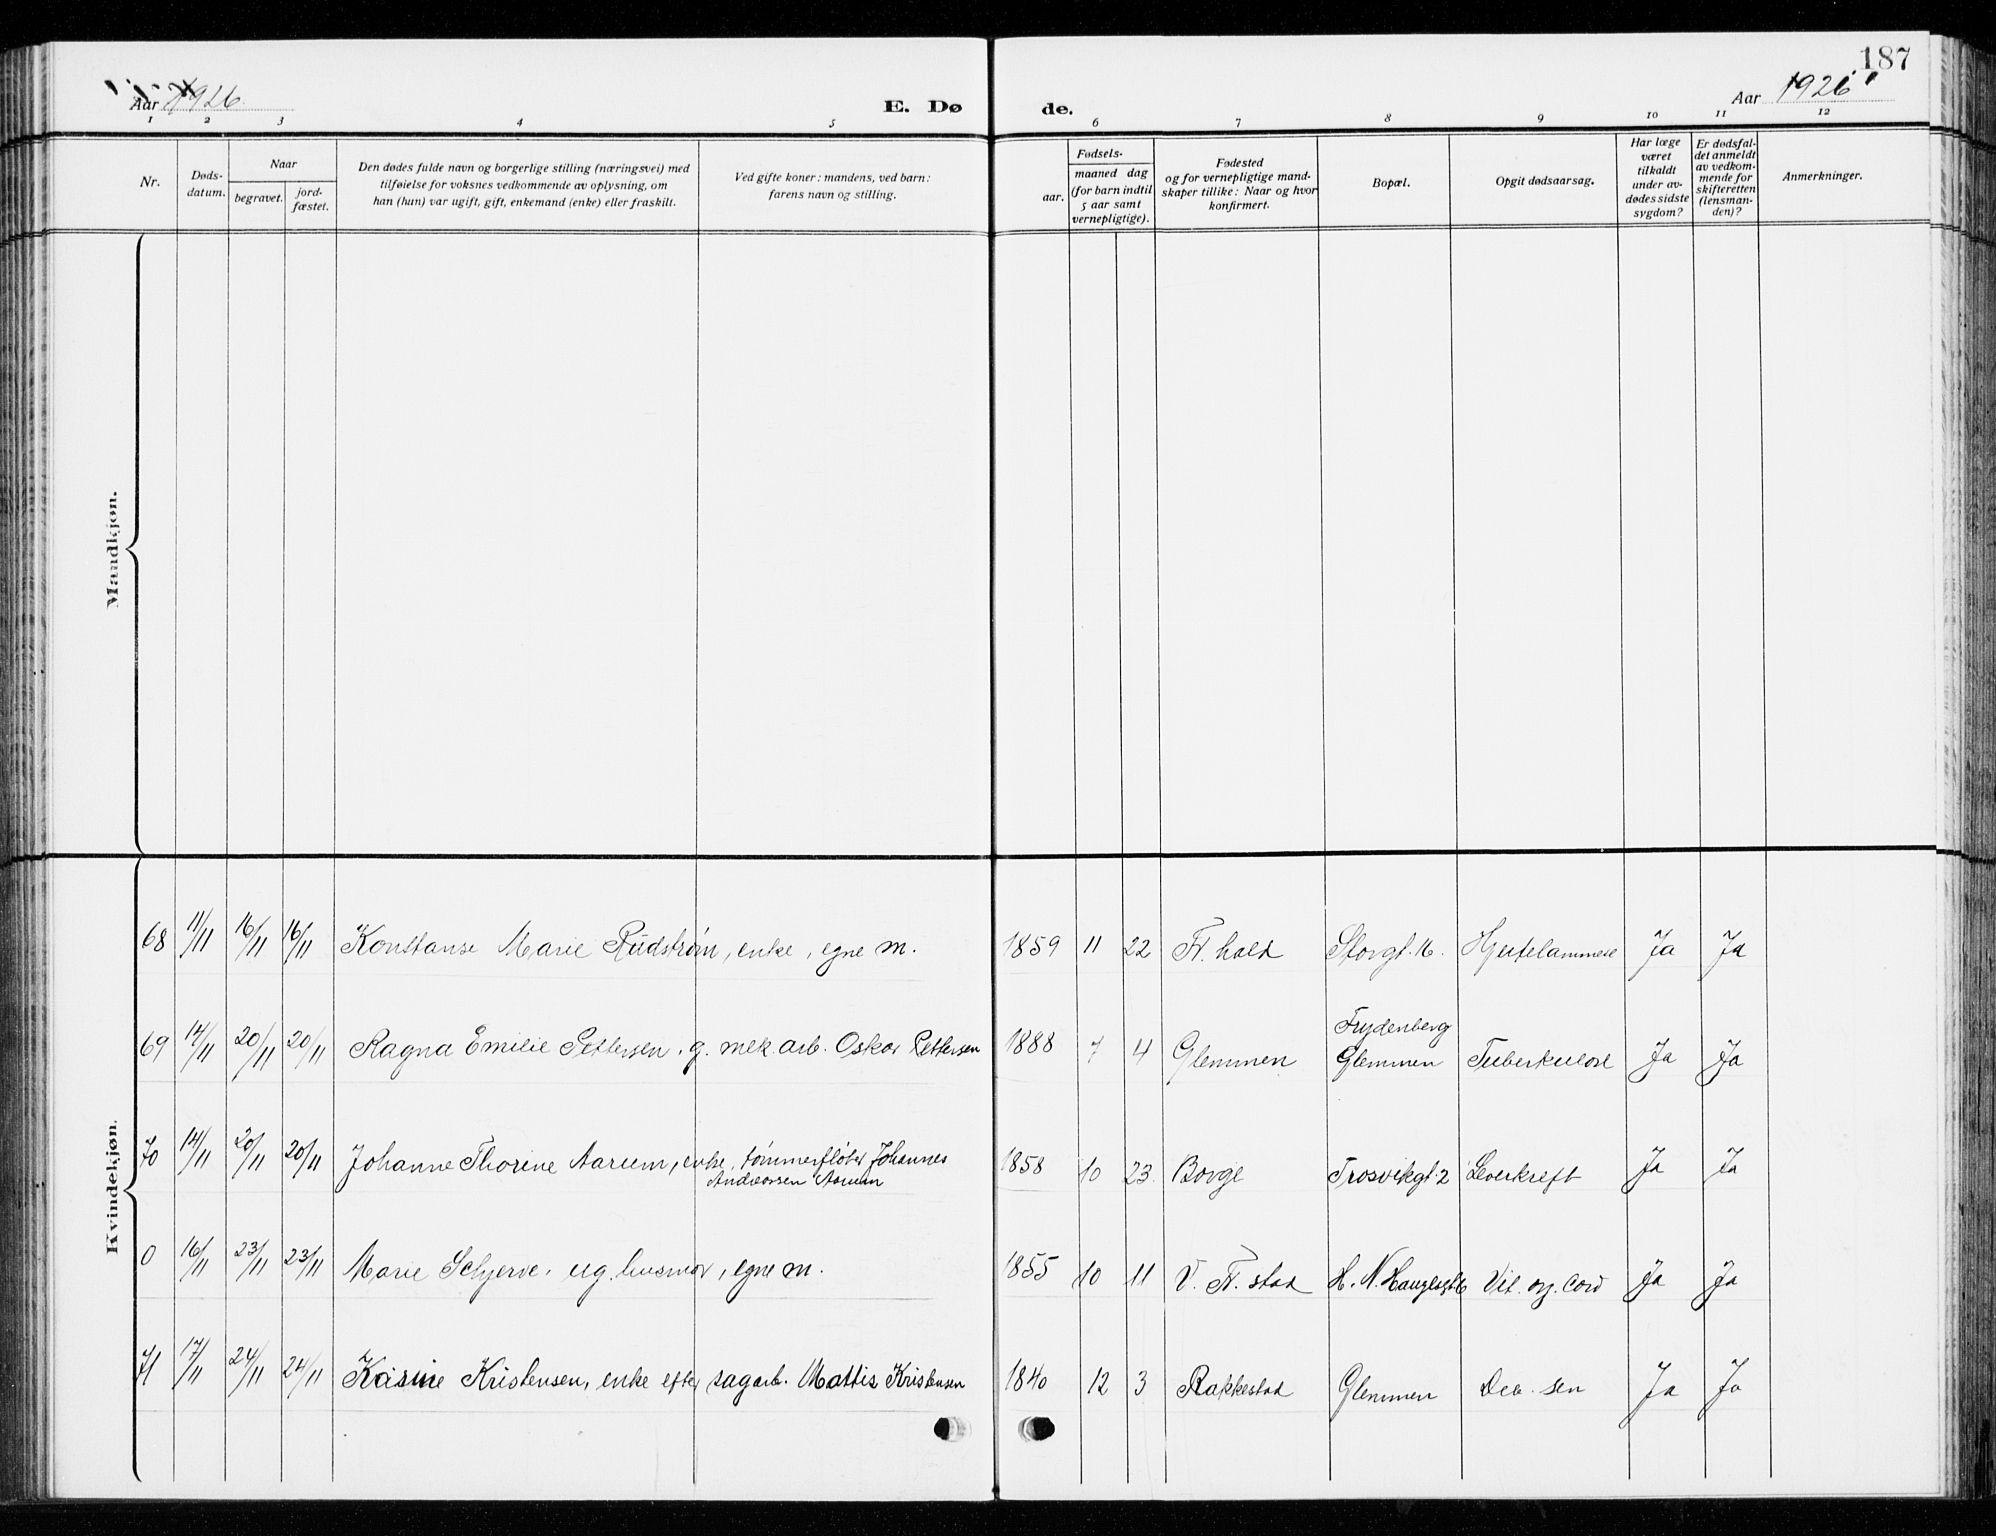 187
Aar 1926
E. Dø de.
Aar 1926
1 2 3 4 5 6 7 8 9 10 11 12
Nr.
Døds-
datum.
Naar
begravet.
jord-
fæstet.
Den dødes fulde navn og borgerlige stilling (næringsvei) med
tilføielse for voksnes vedkommende av oplysning, om
han (hun) var ugift, gift, enkemand (enke) eller fraskilt.
Ved gifte koner: mandens, ved barn:
farens navn og stilling.
Fødsels-
aar.
maaned dag
(for barn indtil
5 aar samt
vernepligtige).
Fødested
og for vernepligtige mand-
skaper tillike: Naar og hvor
konfirmert.
Bopæl.
Opgit dødsaarsag.
Har læge
været
tilkaldt
under av-
dødes sidste
sygdom?
Er dødsfal-
det anmeldt
av vedkom-
mende for
skifteretten
(lensman-
den)?
Anmerkninger.
Mandkjøn.
Kvindekjøn.
68 11/11 16/11 16/11 Konstanse Marie Rudstrøm, enke, egne m. 1859 11 22 Fr. hald Storgt. 16. Hjertelammelse Ja Ja
Frydenberg
69 14/11 20/11 20/11 Ragna Emilie Pettersen. g. mek. arb. Oskar Pettersen 1888 7 4 Glemmen Glemmen Tuberkulose Ja Ja
70 14/11 20/11 20/11 Johanne Thorine Aarum, enke, tømmerfløter Johannes 1858 10 23. Borge Trosvikgt 2 Leverkreft Ja Ja
Andreassen Aarum
0 16/11 23/11 23/11 Marie Schjerve. ug. husmor, egne m. 1855 10 11 V. Fr. stad H. N. Haugesgt 6 Vit. org. Cord Ja Ja
71 17/11 24/11 24/11 Kasine Kristensen, enke efter sagarb. Mattis Kristensen 1840 12 3 Rakkestad Glemmen Deb. sen Ja Ja